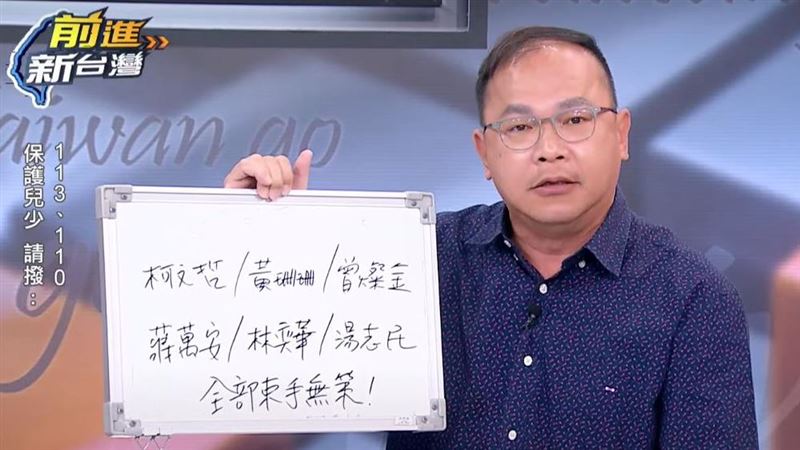 前進
新台灣
aiwan go
113、110
保護兒少 請撥：
柯文哲/黃珊珊/曾燦金
蔣萬安/林奕華/湯志民
全部束手無策!